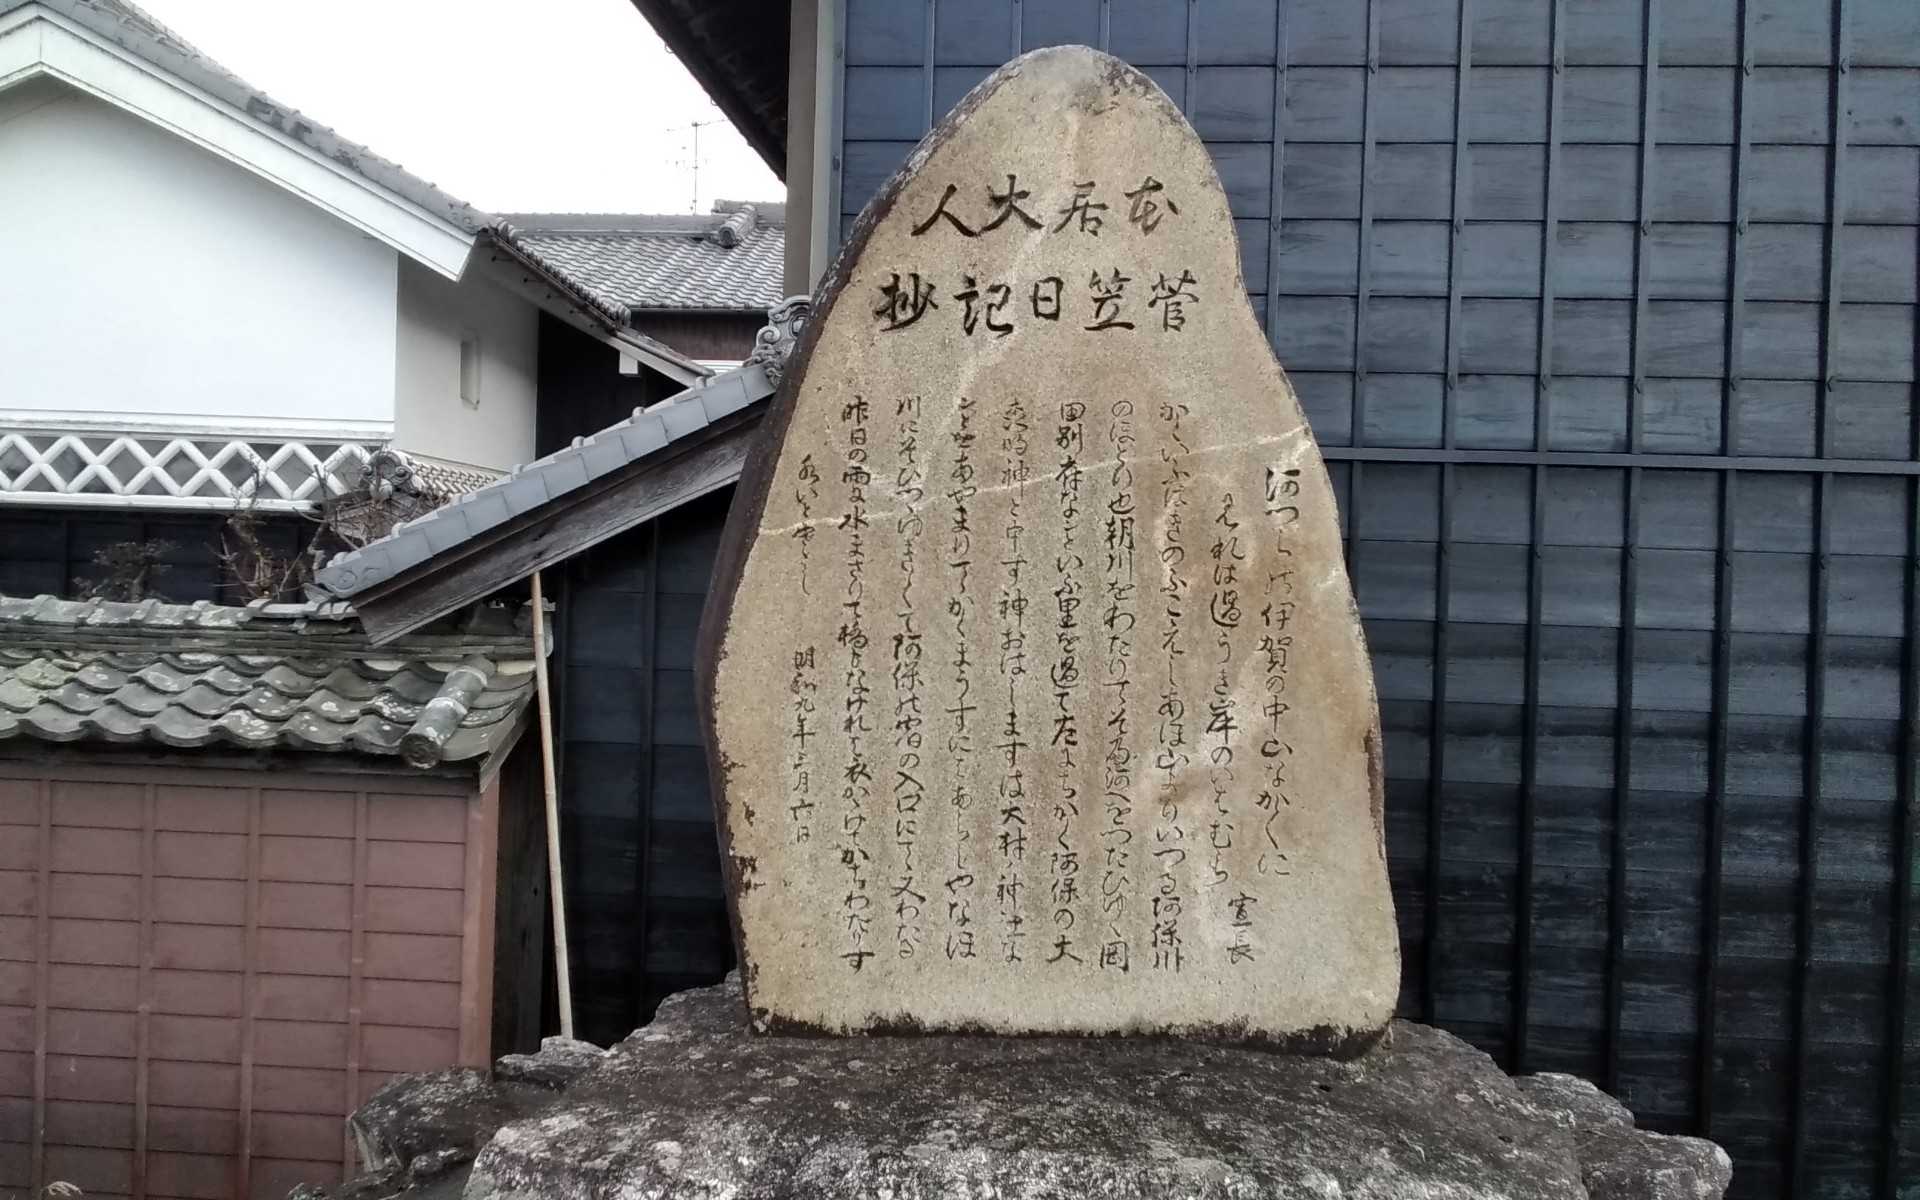 本居大人
菅笠日記抄
河つらの伊賀の中山なか〱に
見れは過うき岸のいはむら
宣長
かくいふはきのふこえしあほ山よりいつる阿保川
のほとり也朝川をわたりてその河へをつたひゆく岡
田別府などいふ里を過て左にちかく阿保の大
森明神と申す神おはしますは大村神社な
どをあやまりてかくまうすにはあらしやなほ
川にそひつゝゆき〱て阿保の宿の入口にて又わたる
昨日の雨に水まさりて橋もなけれは衣かゝけてかちわたりす
水いとさむし
明和九年三月六日